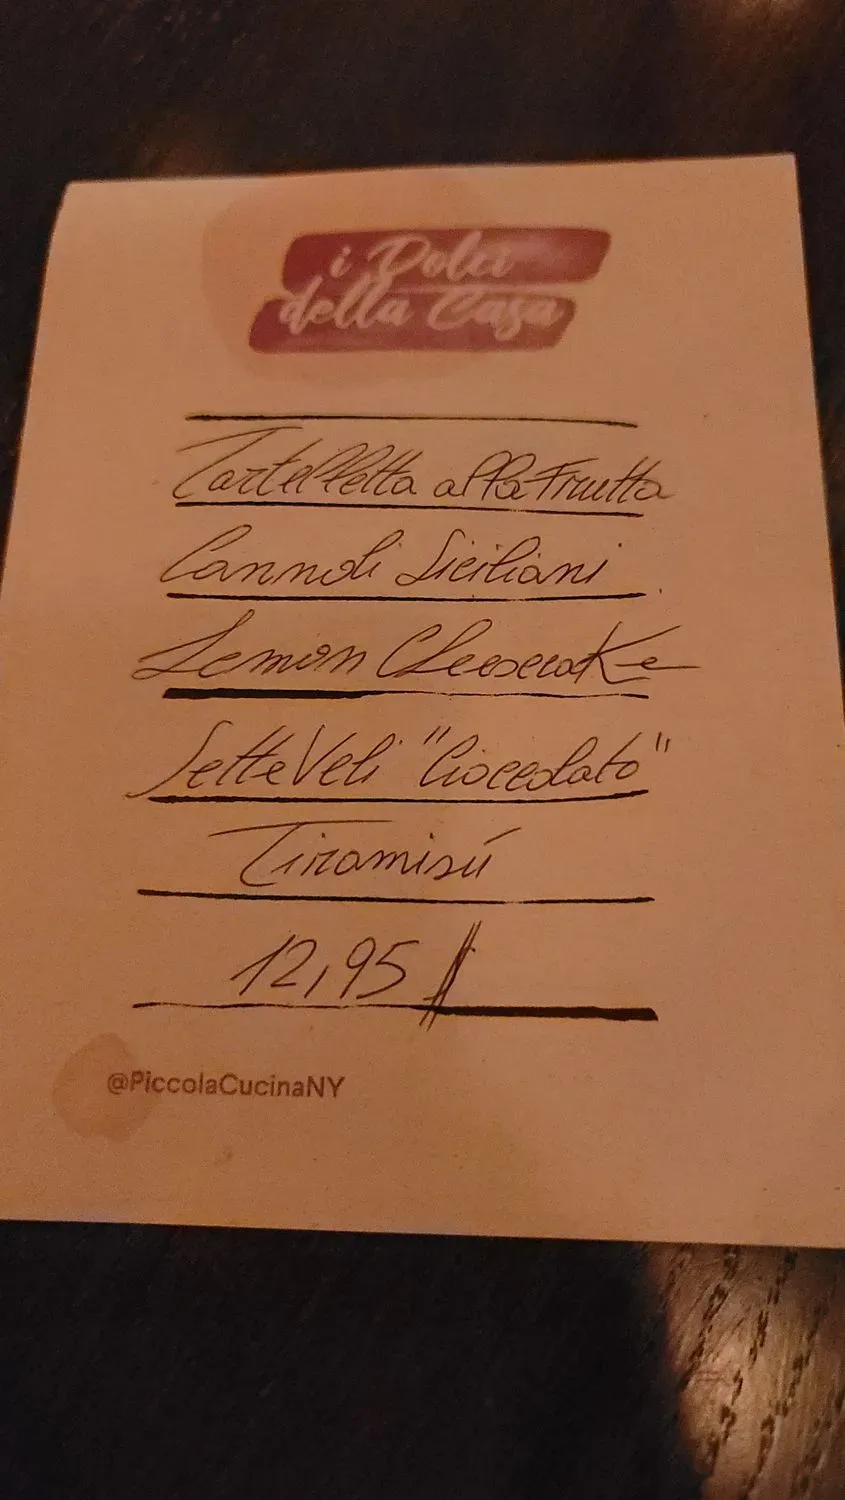 i Dolci
della Casa
Tartelletta alla Frutta
Cannoli Siciliani
Lemon Cheesecake
Sette Veli "Cioccolato"
Tiramisú
12,95 $
@PiccolaCucinaNY